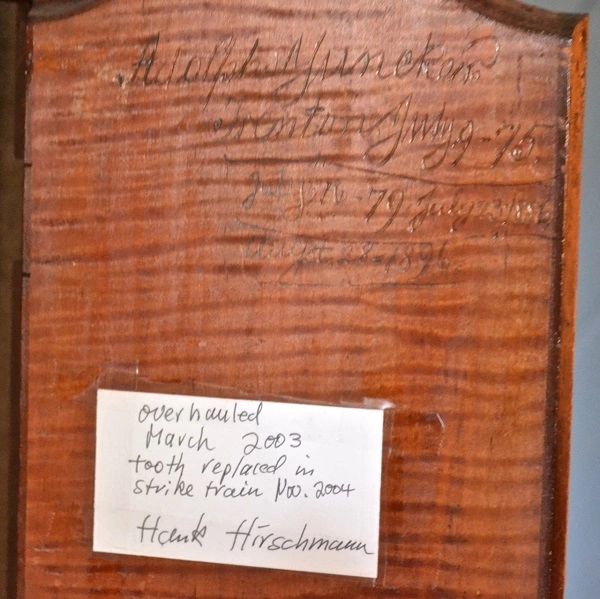 Adolph Yuncker
Trenton July 9-75
Jan -79 July 23 1886
Augt. 28-1896
overhauled
March 2003
tooth replaced in
strike train Nov. 2004
Hank Hirschmann